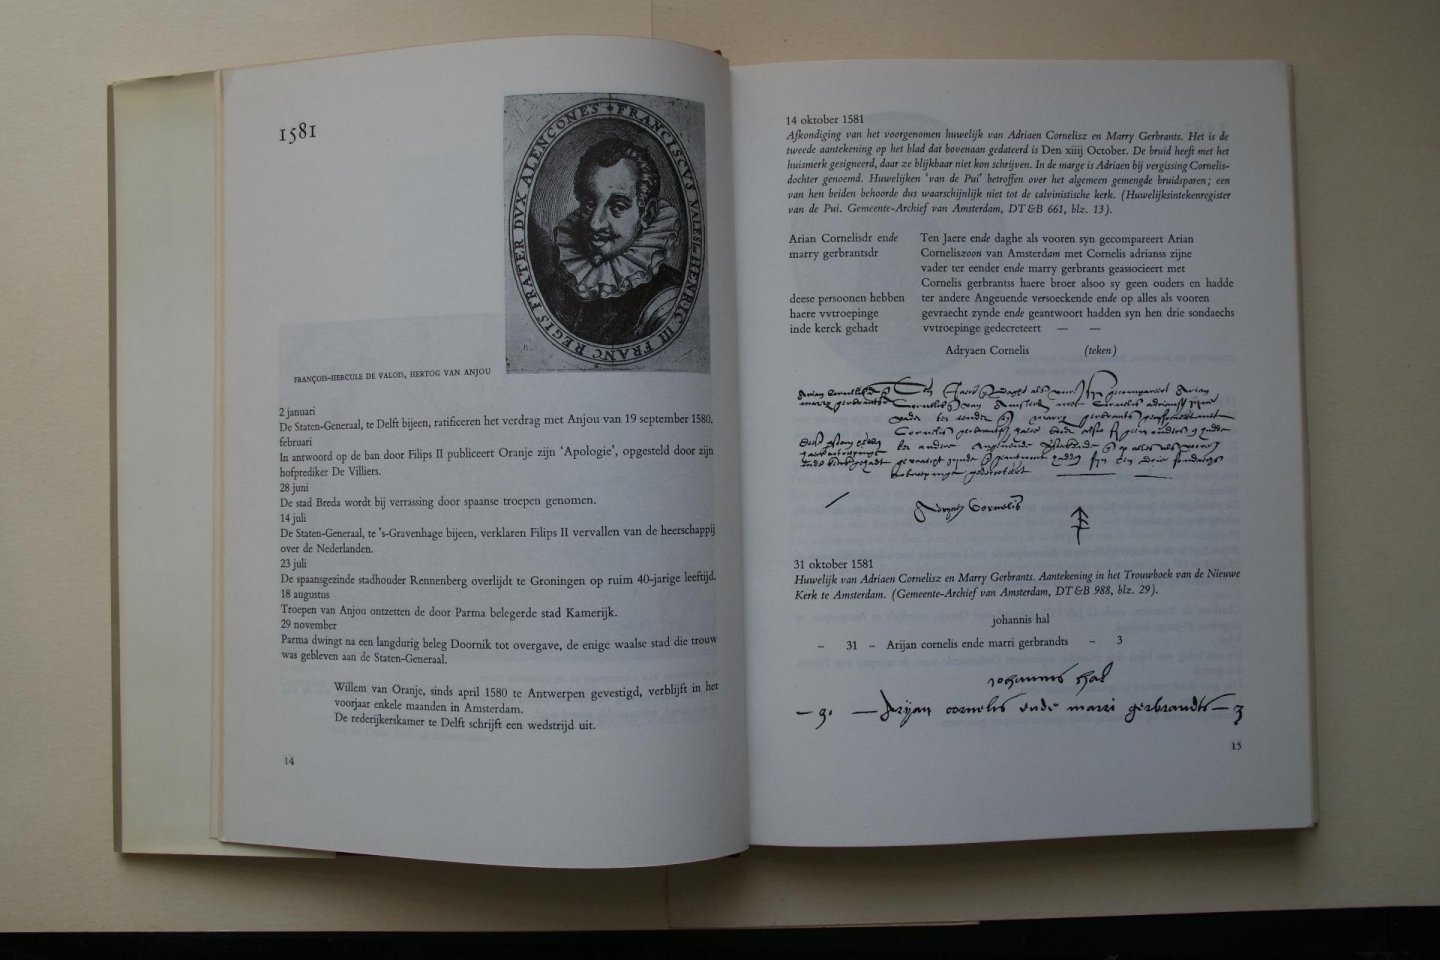 1581
FRANCISCVS VALESI HENRIC III FRANC REGIS FRATER DVX ALENCONES
FRANÇOIS-HERCULE DE VALOIS, HERTOG VAN ANJOU
2 januari
De Staten-Generaal, te Delft bijeen, ratificeren het verdrag met Anjou van 19 september 1580.
februari
In antwoord op de ban door Filips II publiceert Oranje zijn ‘Apologie’, opgesteld door zijn
hofprediker De Villiers.
28 juni
De stad Breda wordt bij verrassing door spaanse troepen genomen.
14 juli
De Staten-Generaal, te ’s-Gravenhage bijeen, verklaren Filips II vervallen van de heerschappij
over de Nederlanden.
23 juli
De spaansgezinde stadhouder Rennenberg overlijdt te Groningen op ruim 40-jarige leeftijd.
18 augustus
Troepen van Anjou ontzetten de door Parma belegerde stad Kamerijk.
29 november
Parma dwingt na een langdurig beleg Doornik tot overgave, de enige waalse stad die trouw
was gebleven aan de Staten-Generaal.
Willem van Oranje, sinds april 1580 te Antwerpen gevestigd, verblijft in het
voorjaar enkele maanden in Amsterdam.
De rederijkerskamer te Delft schrijft een wedstrijd uit.
14
14 oktober 1581
Afkondiging van het voorgenomen huwelijk van Adriaen Cornelisz en Marry Gerbrants. Het is de
tweede aantekening op het blad dat bovenaan gedateerd is Den xiiij October. De bruid heeft met het
huismerk gesigneerd, daar ze blijkbaar niet kon schrijven. In de marge is Adriaen bij vergissing Cornelis-
dochter genoemd. Huwelijken ‘van de Pui’ betroffen over het algemeen gemengde bruidsparen; een
van hen beiden behoorde dus waarschijnlijk niet tot de calvinistische kerk. (Huwelijksintekenregister
van de Pui. Gemeente-Archief van Amsterdam, DT&B 661, blz. 13).
Arian Cornelisdr ende
marry gerbrantsdr
deese persoonen hebben
haere vvtroepinge
inde kerck gehadt
Ten Jaere ende daghe als vooren syn gecompareert Arian
Corneliszoon van Amsterdam met Cornelis adrianss zijne
vader ter eender ende marry gerbrants geassocieert met
Cornelis gerbrantss haere broer alsoo sy geen ouders en hadde
ter andere Angeuende versoeckende ende op alles als vooren
gevraecht zynde ende geantwoort hadden syn hen drie sondaechs
vvtroepinge gedecreteert — —
Adryaen Cornelis (teken)
Adryaen Cornelis
31 oktober 1581
Huwelijk van Adriaen Cornelisz en Marry Gerbrants. Aantekening in het Trouwboek van de Nieuwe
Kerk te Amsterdam. (Gemeente-Archief van Amsterdam, DT&B 988, blz. 29).
johannis hal
– 31 – Arijan cornelis ende marri gerbrandts – 3
iohannis hal
— 31 — Arijan cornelis ende marri gerbrandts — 3
15